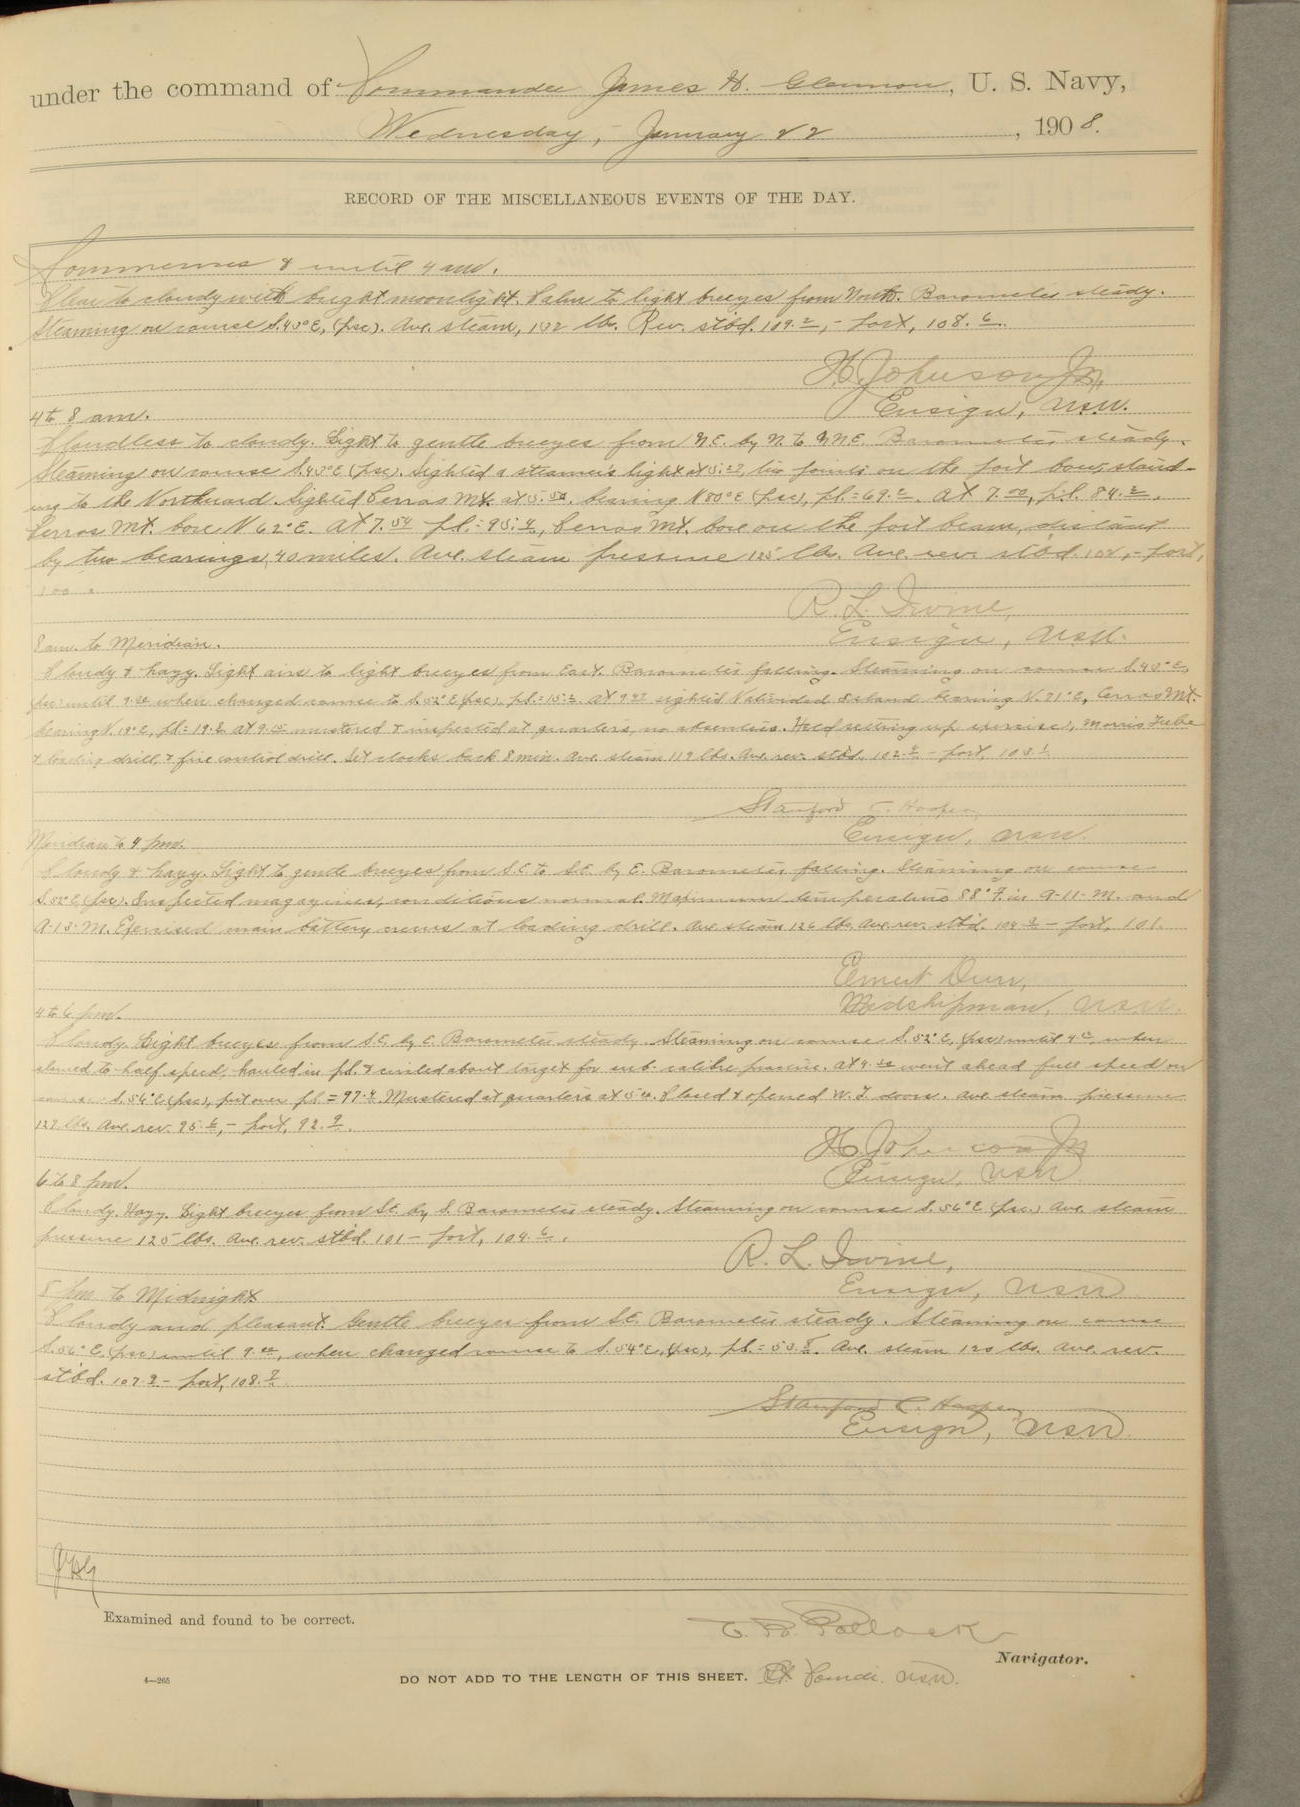 under the command of Commander James H. Glennon, U. S. Navy,
Wednesday, January 22, 1908.
RECORD OF THE MISCELLANEOUS EVENTS OF THE DAY.
Commences & until 4 am.
Clear to cloudy with bright moonlight. Calm to light breezes from North. Barometer steady.
Steaming on course S. 40° E, (psc). Ave. steam, 102 lbs. Rev. stbd. 109.2, - port, 108.6.
H. Johnson Jr.,
Ensign, USN.
4 to 8 am.
Cloudless to cloudy. Light to gentle breezes from N.E. by N. to N.N.E. Barometer steady.
Steaming on course S. 40° E (psc). Sighted a steamer's light at 5:27, two points on the port bow, stand-
ing to the Northward. Sighted Cerros Mt. at 5.50, bearing N 80° E (psc), pl. = 69.2. At 7.00, p.l. 84.2,
Cerros Mt. bore N 62° E. At 7.54 pl. = 95.4, Cerros Mt. bore on the port beam, distant
by two bearings, 40 miles. Ave. steam pressure 125 lbs. Ave. rev. stbd. 102, - port,
100.
R. L. Irvine,
Ensign, USN.
8 am. to Meridian.
Cloudy & hazy. Light airs to light breezes from East. Barometer falling. Steaming on course S. 40° E,
(psc) until 9.30 when changed course to S. 52° E (psc), pl. = 15.2. At 9.42 sighted Natividad Island bearing N. 71° E, Cerros Mt.
bearing N. 19° E, pl = 19.8. At 9.15 mustered & inspected at quarters, no absentees. Held setting up exercises, Morris Tube
& loading drill, & fire control drill. Set clocks back 8 min. Ave. steam 119 lbs. Ave. rev. stbd. 102.2 - port, 103.1
Stanford C. Hooper,
Ensign, USN.
Meridian to 4 pm.
Cloudy & hazy. Light to gentle breezes from S.E. to S.E. by E. Barometer falling. Steaming on course
S. 52° E (psc). Inspected magazines, conditions normal. Maximum temperature 88° F. in A-11-M. and
A-13-M. Exercised main battery crews at loading drill. Ave steam 126 lbs. Ave. rev. stbd. 104.2 - port, 101.
Ernest Durr,
Midshipman, USN.
4 to 6 pm.
Cloudy. Light breezes from S.E. by E. Barometer steady. Steaming on course S. 52° E, (psc) until 4 when
slowed to half speed, hauled in p.l. & circled about target for sub-calibre practice. At 4.30 went ahead full speed on
course S. 56° E (psc), put over pl. = 97.4. Mustered at quarters at 5. Closed & opened W.T. doors. Ave. steam pressure
129 lbs. Ave. rev. 95.6, - port, 92.9.
H. Johnson Jr.
Ensign, USN
6 to 8 pm.
Cloudy. Hazy. Light breezes from S.E. by S. Barometer steady. Steaming on course S. 56° E (psc.) Ave. steam
pressure 125 lbs. Ave. rev. stbd. 101 - port, 104.6.
R. L. Irvine,
Ensign, USN
8 pm to Midnight
Cloudy and pleasant. Gentle breezes from S.E. Barometer steady. Steaming on course
S. 56° E. (psc) until 9, when changed course to S. 54° E, (psc), pl. = 53.8. Ave. steam 120 lbs. Ave. rev.
stbd. 107.9 - port, 108.7
Stanford C. Hooper,
Ensign, USN
JHG
Examined and found to be correct.
E. R. Pollock
Navigator.
4—265
DO NOT ADD TO THE LENGTH OF THIS SHEET. Lt. Comdr. USN.